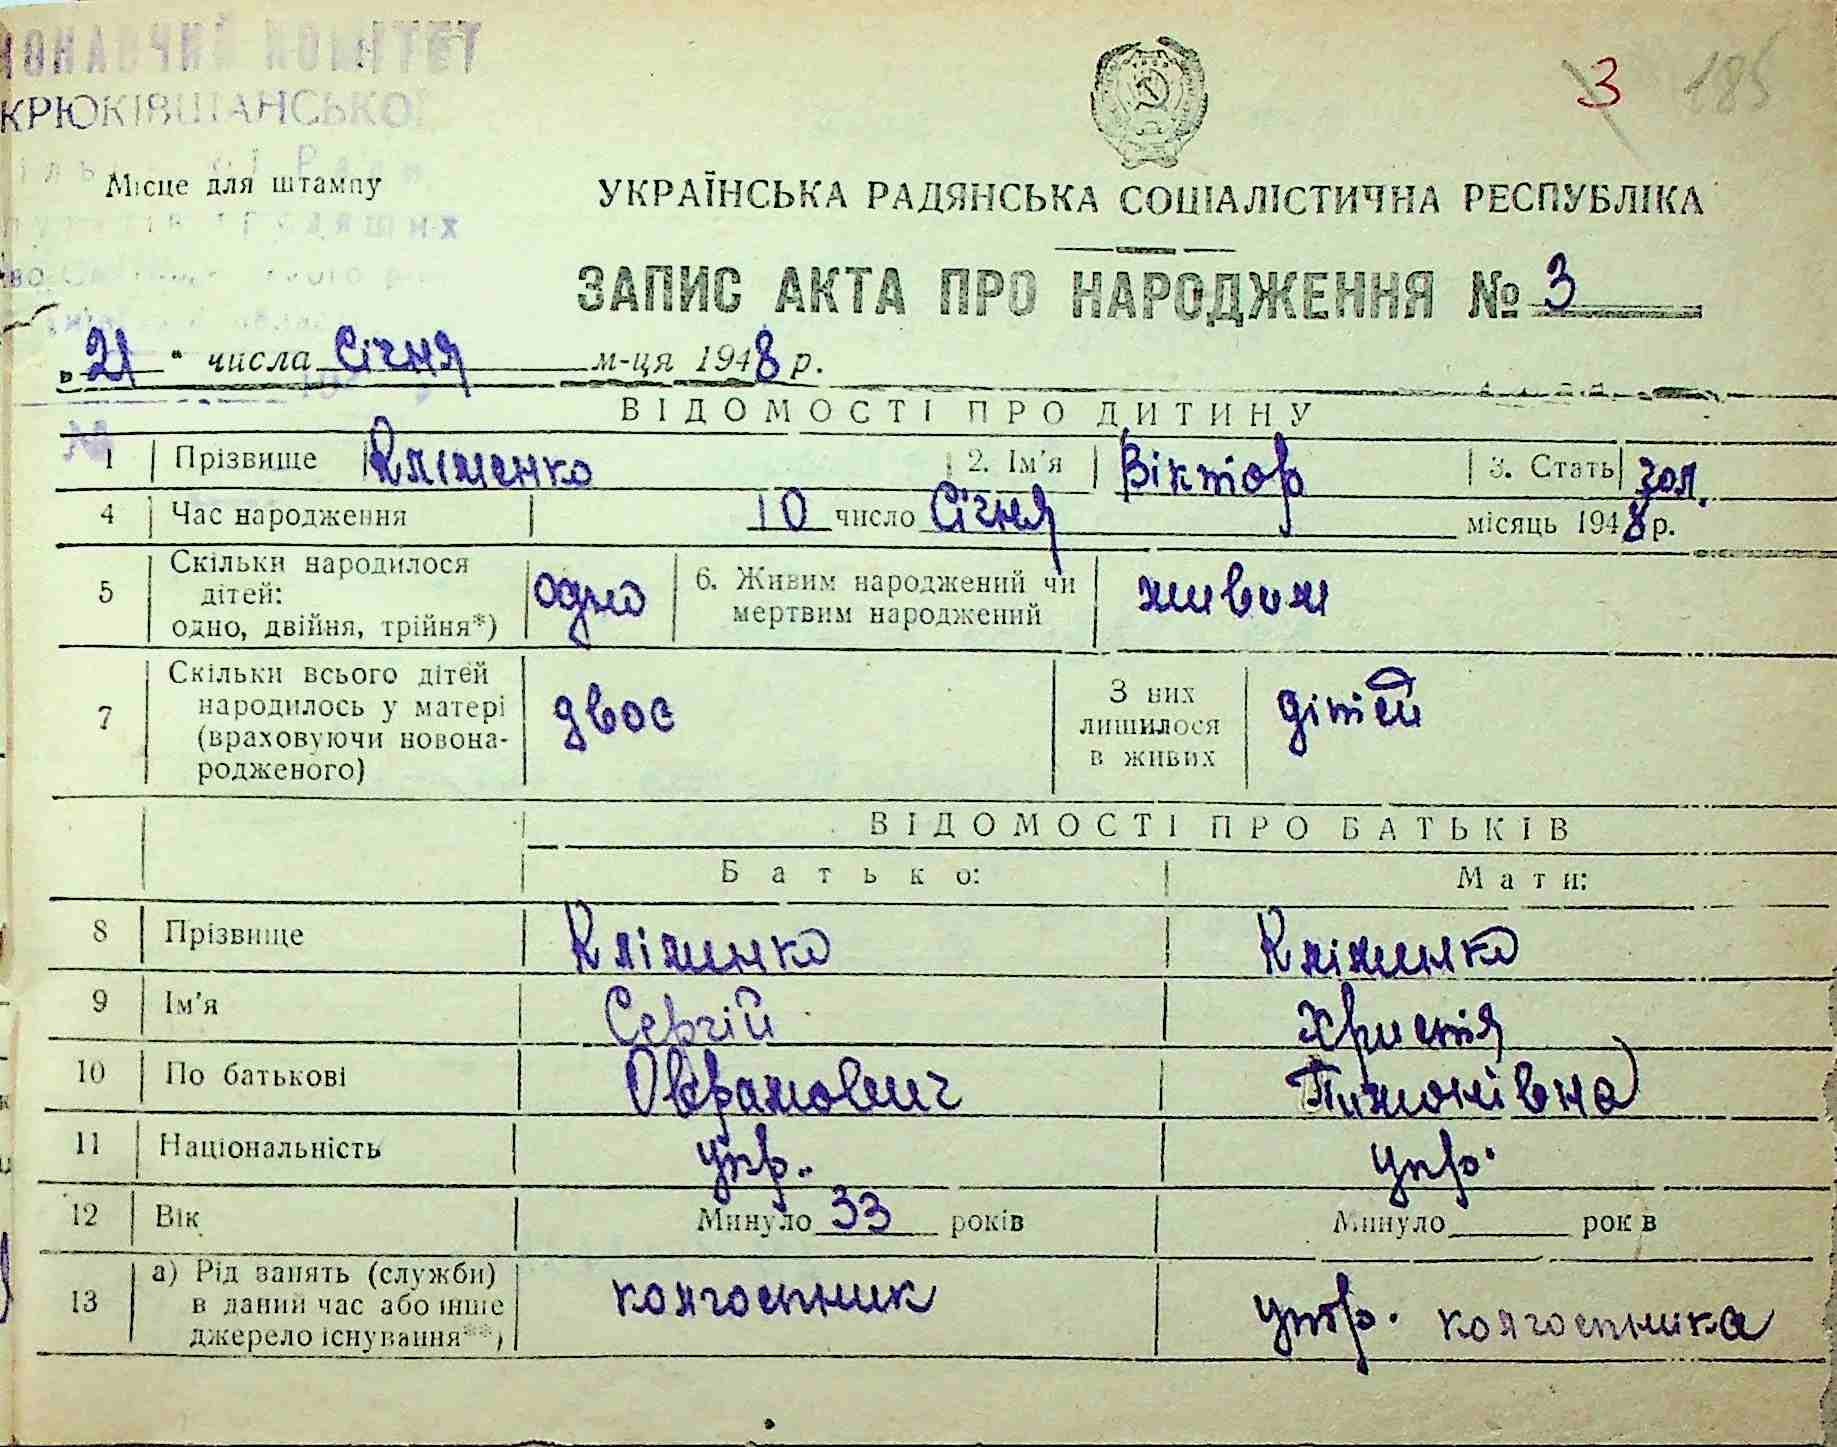 КОМІТЕТ
КРЮКІВЩАНСЬКОЇ
3 185
Місце для штампу
УКРАЇНСЬКА РАДЯНСЬКА СОЦІАЛІСТИЧНА РЕСПУБЛІКА
ЗАПИС АКТА ПРО НАРОДЖЕННЯ № 3
„21" числа Січня м-ця 1948 р.
ВІДОМОСТІ ПРО ДИТИНУ
1 Прізвище Кліменко 2. Ім'я Віктор 3. Стать чол.
4 Час народження 10 число Січня місяць 1948 р.
5 Скільки народилося дітей: одно, двійня, трійня*) одно 6. Живим народжений чи мертвим народжений живим
7 Скільки всього дітей народилось у матері (враховуючи новонародженого) двоє З них лишилося в живих дітей
ВІДОМОСТІ ПРО БАТЬКІВ
Батько: Мати:
8 Прізвище Кліменко Кліменко
9 Ім'я Сергій Христя
10 По батькові Оврамович Тимонівна
11 Національність укр. укр.
12 Вік Минуло 33 років Минуло років
13 а) Рід занять (служби) в даний час або інше джерело існування**) колгоспник утр. колгоспника